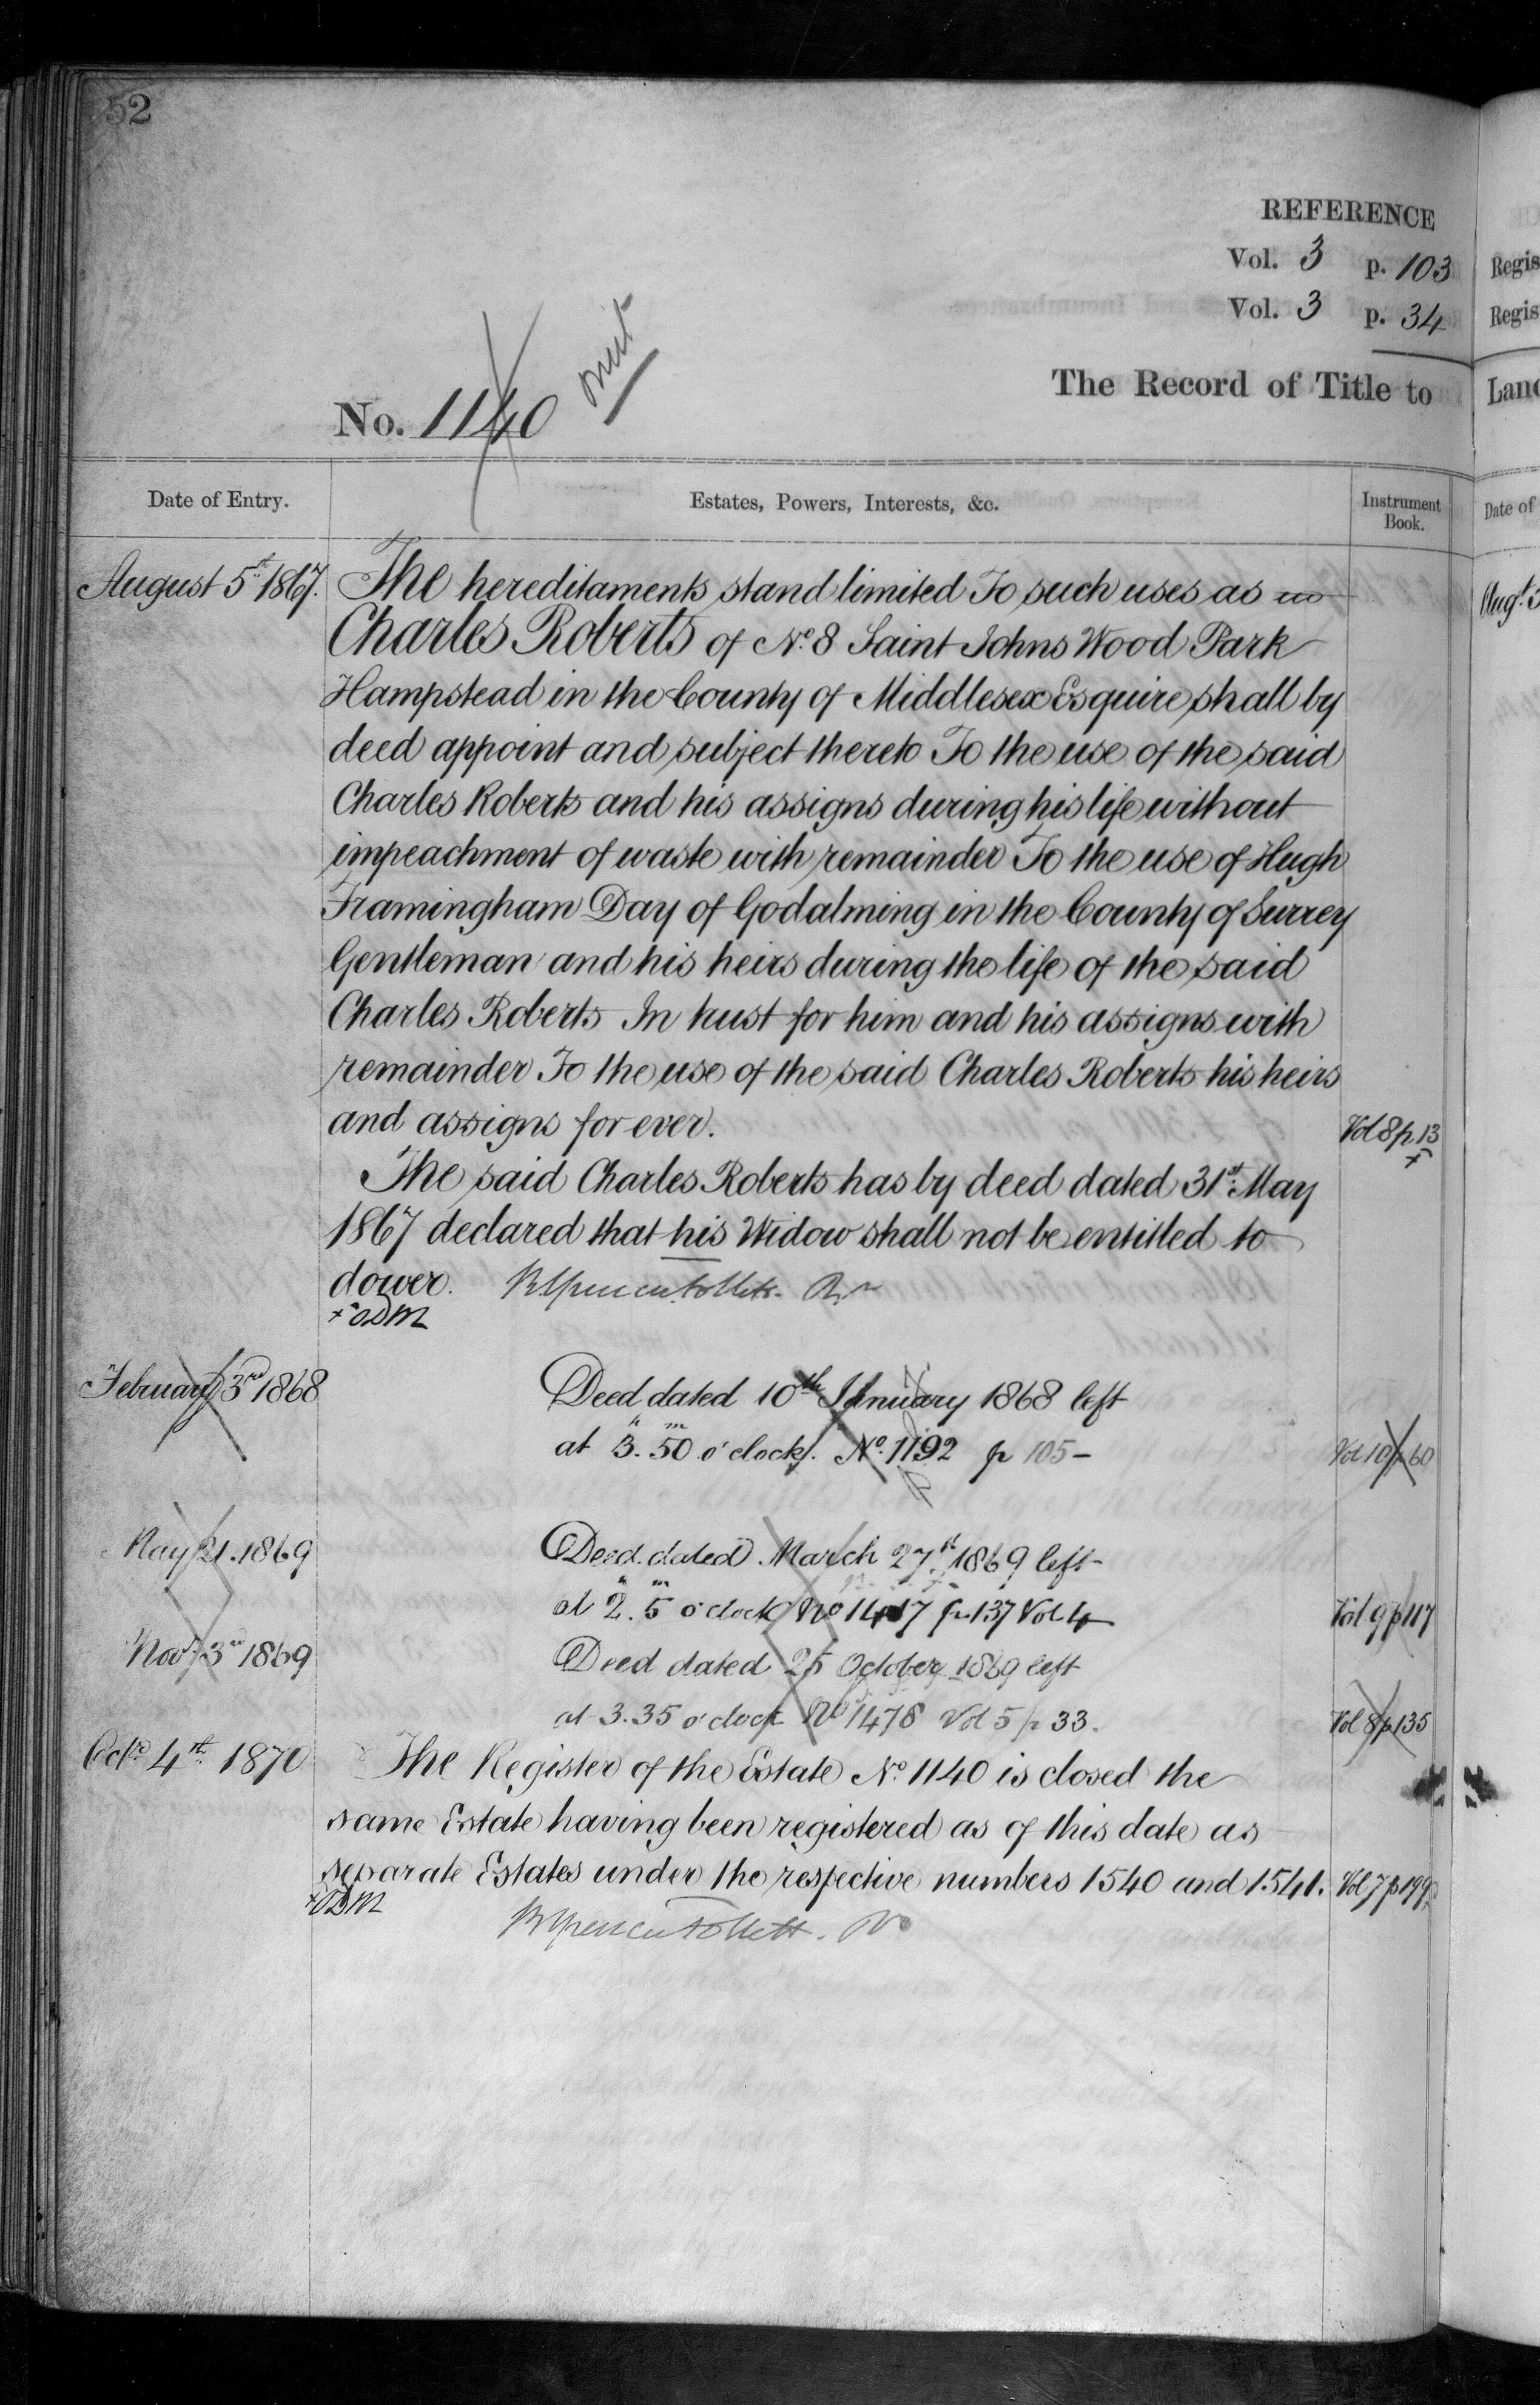 52
REFERENCE
Vol. 3 p. 103
Vol. 3 p. 34
The Record of Title to
No. 1140 omit
Date of Entry. Estates, Powers, Interests, &c. Instrument Book.
August 5th 1867. The hereditaments stand limited To such uses as
Charles Roberts of No. 8 Saint Johns Wood Park
Hampstead in the County of Middlesex Esquire shall by
deed appoint and subject thereto To the use of the said
Charles Roberts and his assigns during his life without
impeachment of waste with remainder To the use of Hugh
Framingham Day of Godalming in the County of Surrey
Gentleman and his heirs during the life of the said
Charles Roberts In trust for him and his assigns with
remainder To the use of the said Charles Roberts his heirs
and assigns for ever. Vol 8 p. 13
The said Charles Roberts has by deed dated 31st May
1867 declared that his Widow shall not be entitled to
dower.
February 3rd 1868 Deed dated 10th January 1868 left
at 3h. 50m o'clock. No. 1192 p 105 - Vol 10 p 60
May 21. 1869 Deed dated March 27th 1869 left
at 2h. 5m o'clock No 1417 p. 137 Vol 4 Vol 9 p 117
Novr 3rd 1869 Deed dated 25 October 1869 left
at 3.35 o'clock No 1478 Vol 5 p 33. Vol 8 p 135
Octr 4th 1870 The Register of the Estate No. 1140 is closed the
same Estate having been registered as of this date as
separate Estates under the respective numbers 1540 and 1541. Vol 7 p 199
Regis
Regis
Land
Date of
Augt 5